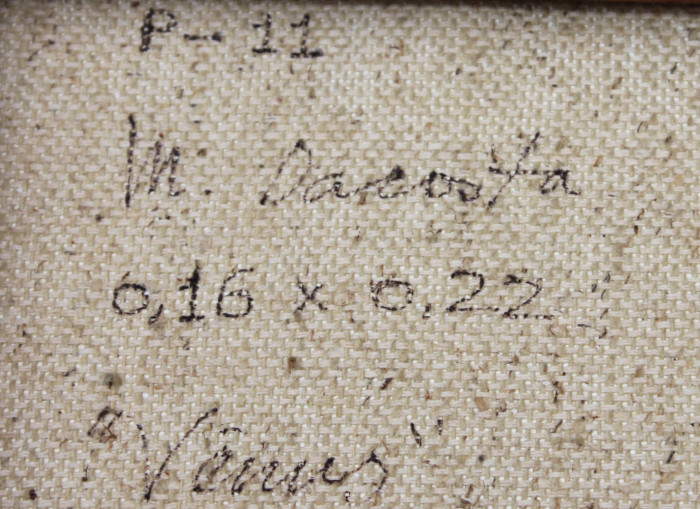 P-11
M. Dacosta
0,16 x 0,22
"Vênus"